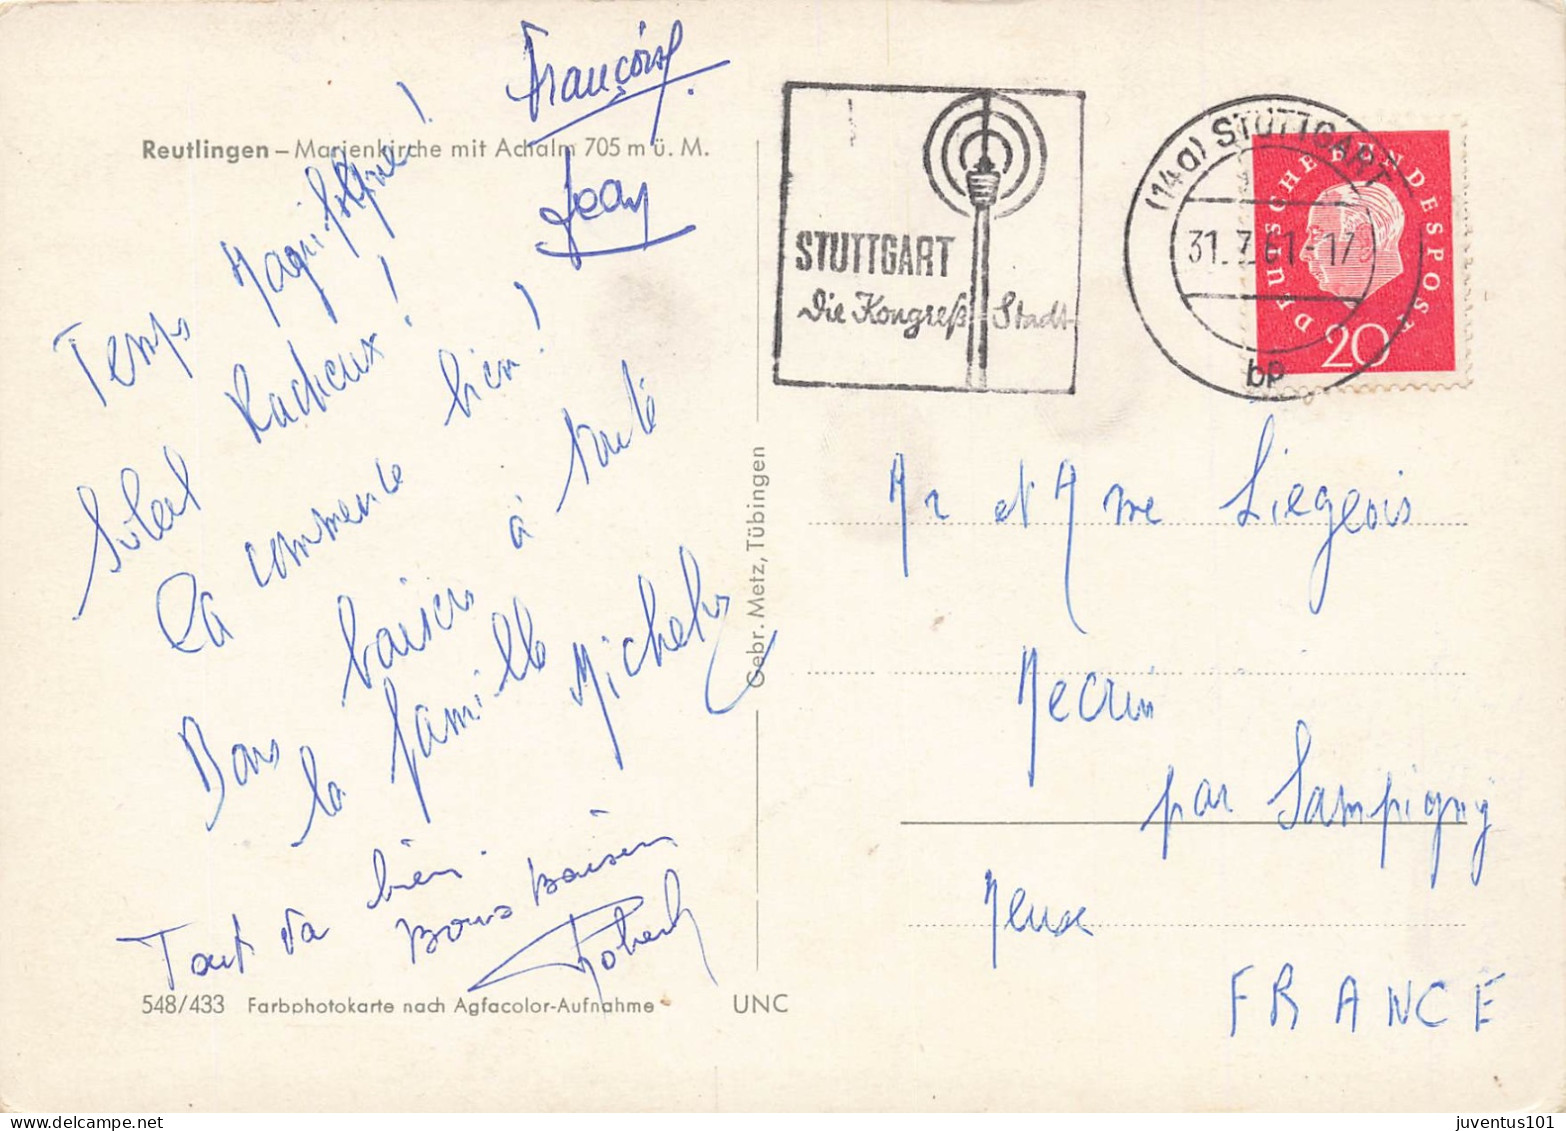 Françoise
Jean
Reutlingen – Marienkirche mit Achalm 705 m ü. M.
Temps Magnifique !
Soleil Radieux !
Ca commence bien !
Bons baisers à toute
la famille Michel
Tout va bien.
Bons Baisers
Robert
548/433 Farbphotokarte nach Agfacolor-Aufnahme
UNC
Gebr. Metz, Tübingen
STUTTGART
Die Kongreß-Stadt
(14a) STUTTGART
31.7.61-17
bp
DEUTSCHE BUNDESPOST
20
Mr et Mme Liegeois
Mecrin
par Sampigny
Meuse
FRANCE
juventus101